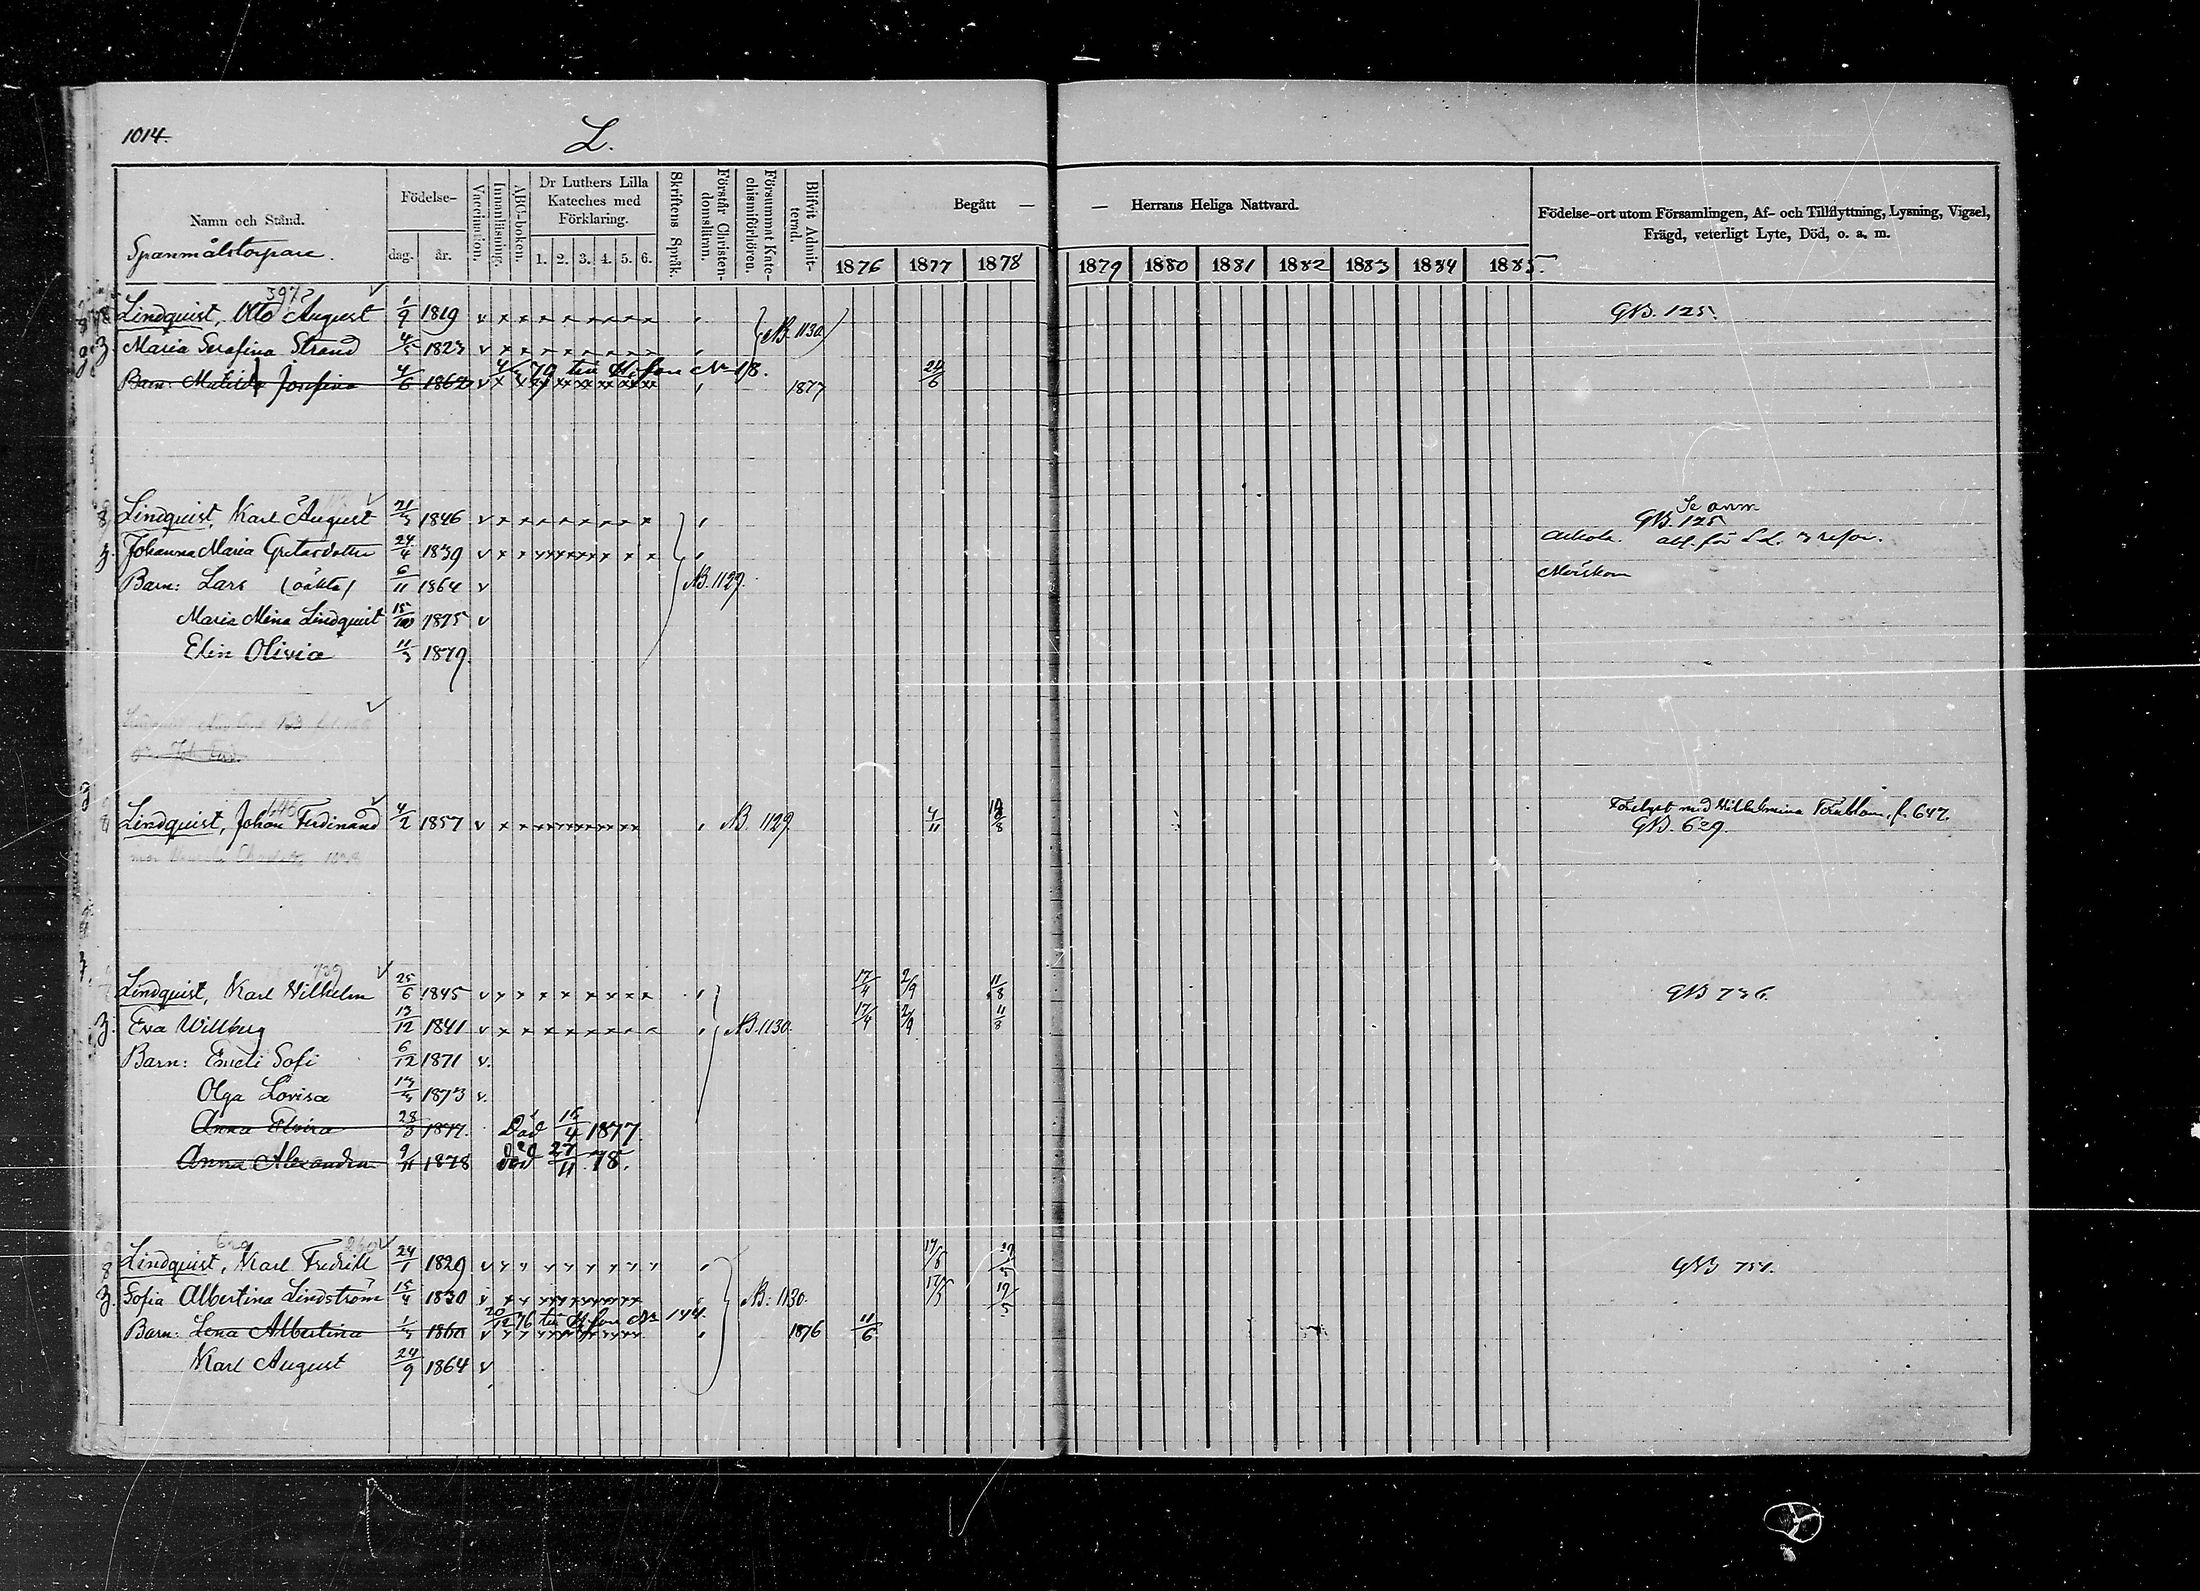 1014.
L.
Namn och Stånd.
Spanmålstorpare.
Födelse-
dag. år.
Vaccination.
Innanläsning.
ABC-boken.
Dr Luthers Lilla Kateches med Förklaring.
1. 2. 3. 4. 5. 6.
Skriftens Språk.
Förstår Christendomsläran.
Försummat Katechismiförhören.
Blifvit Admitterad.
Begått — — Herrans Heliga Nattvard.
1876 1877 1878 1879 1880 1881 1882 1883 1884 1885.
Födelse-ort utom Församlingen, Af- och Tillflyttning, Lysning, Vigsel,
Frägd, veterligt Lyte, Död, o. a. m.
397
Lindquist, Otto August 1/9 1819 v x x x x x x x x NB. 1130 GNB. 125.
Maria Serafina Strand 4/5 1823 v x x x x x x x x
4/5 79 till H:fors No 18.
Barn: Matilda Josefina 4/6 1862 v 1877 24/6
Lindquist, Karl August 21/3 1846 v x x x x x x x x Se anm GNB. 125
Johanna Maria Gretasdotter 24/4 1839 v
Barn: Lars (oäkta) 6/11 1864 v NB. 1129.
Maria Mina Lindquist 15/10 1875 v
Elin Olivia 11/3 1879.
Lindquist, Johan Ferdinand 4/2 1857 v NB. 1129. 4/11 Förlyst med Vilhelmina f. 647.
GNB. 629.
739
Lindquist, Karl Vilhelm 25/6 1845 v x x x x x x x x 17/4 2/9 11/8 GNB 736.
Eva Willberg 13/12 1841 v x x x x x x x x NB. 1130. 17/4 2/9 11/8
Barn: Emeli Sofi 6/12 1871 v.
Olga Lovisa 13/3 1873 v.
Anna Elvira 28/3 1877. Död 15/4 1877
Anna Alexandra 9/11 1878 död 27/11 78.
629
Lindquist, Karl Fredrik 24/1 1829 v v v v v v v v v 17/6 GNB 751.
Sofia Albertina Lindström 15/4 1830 v NB: 1130. 17/5 19/5
20/12 76 till H:fors No 144.
Barn: Lena Albertina 1/3 1860 v 1876 11/6
Karl August 24/9 1864 v